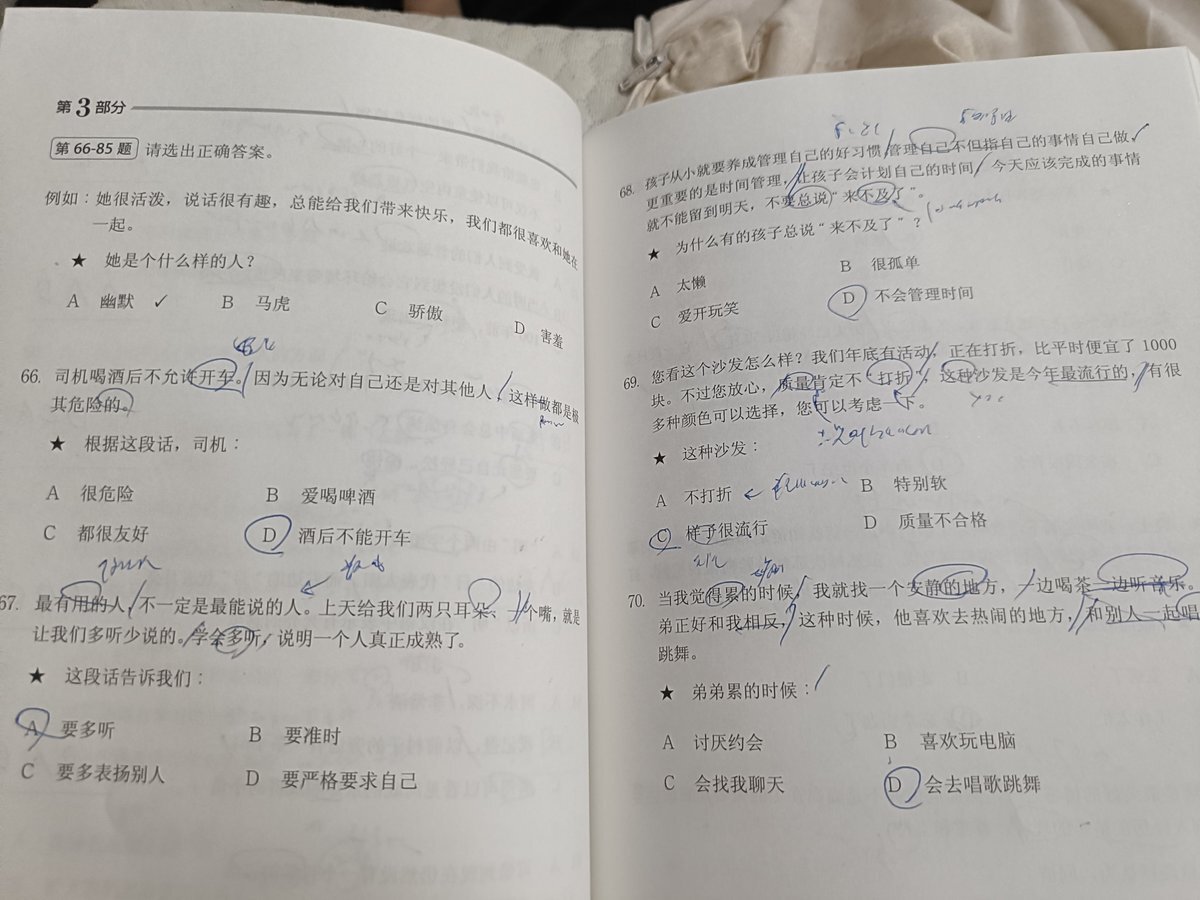 第3部分
第 66-85 题 请选出正确答案。
例如：她很活泼，说话很有趣，总能给我们带来快乐，我们都很喜欢和她在
一起。
★ 她是个什么样的人？
A 幽默 ✓ B 马虎 C 骄傲 D 害羞
66. 司机喝酒后不允许开车。因为无论对自己还是对其他人，这样做都是极
其危险的。
★ 根据这段话，司机：
A 很危险 B 爱喝啤酒
C 都很友好 D 酒后不能开车
67. 最有用的人，不一定是最能说的人。上天给我们两只耳朵、一个嘴，就是
让我们多听少说的。学会多听，说明一个人真正成熟了。
★ 这段话告诉我们：
A 要多听 B 要准时
C 要多表扬别人 D 要严格要求自己
68. 孩子从小就要养成管理自己的好习惯，管理自己不但指自己的事情自己做，
更重要的是时间管理，让孩子会计划自己的时间，今天应该完成的事情
就不能留到明天，不要总说“来不及了”。
★ 为什么有的孩子总说“来不及了”？
A 太懒 B 很孤单
C 爱开玩笑 D 不会管理时间
69. 您看这个沙发怎么样？我们年底有活动，正在打折，比平时便宜了 1000
块。不过您放心，质量肯定不“打折”，这种沙发是今年最流行的，有很
多种颜色可以选择，您可以考虑一下。
★ 这种沙发：
A 不打折 B 特别软
C 样子很流行 D 质量不合格
70. 当我觉得累的时候，我就找一个安静的地方，一边喝茶一边听音乐。
弟弟正好和我相反，这种时候，他喜欢去热闹的地方，和别人一起唱
跳舞。
★ 弟弟累的时候：
A 讨厌约会 B 喜欢玩电脑
C 会找我聊天 D 会去唱歌跳舞